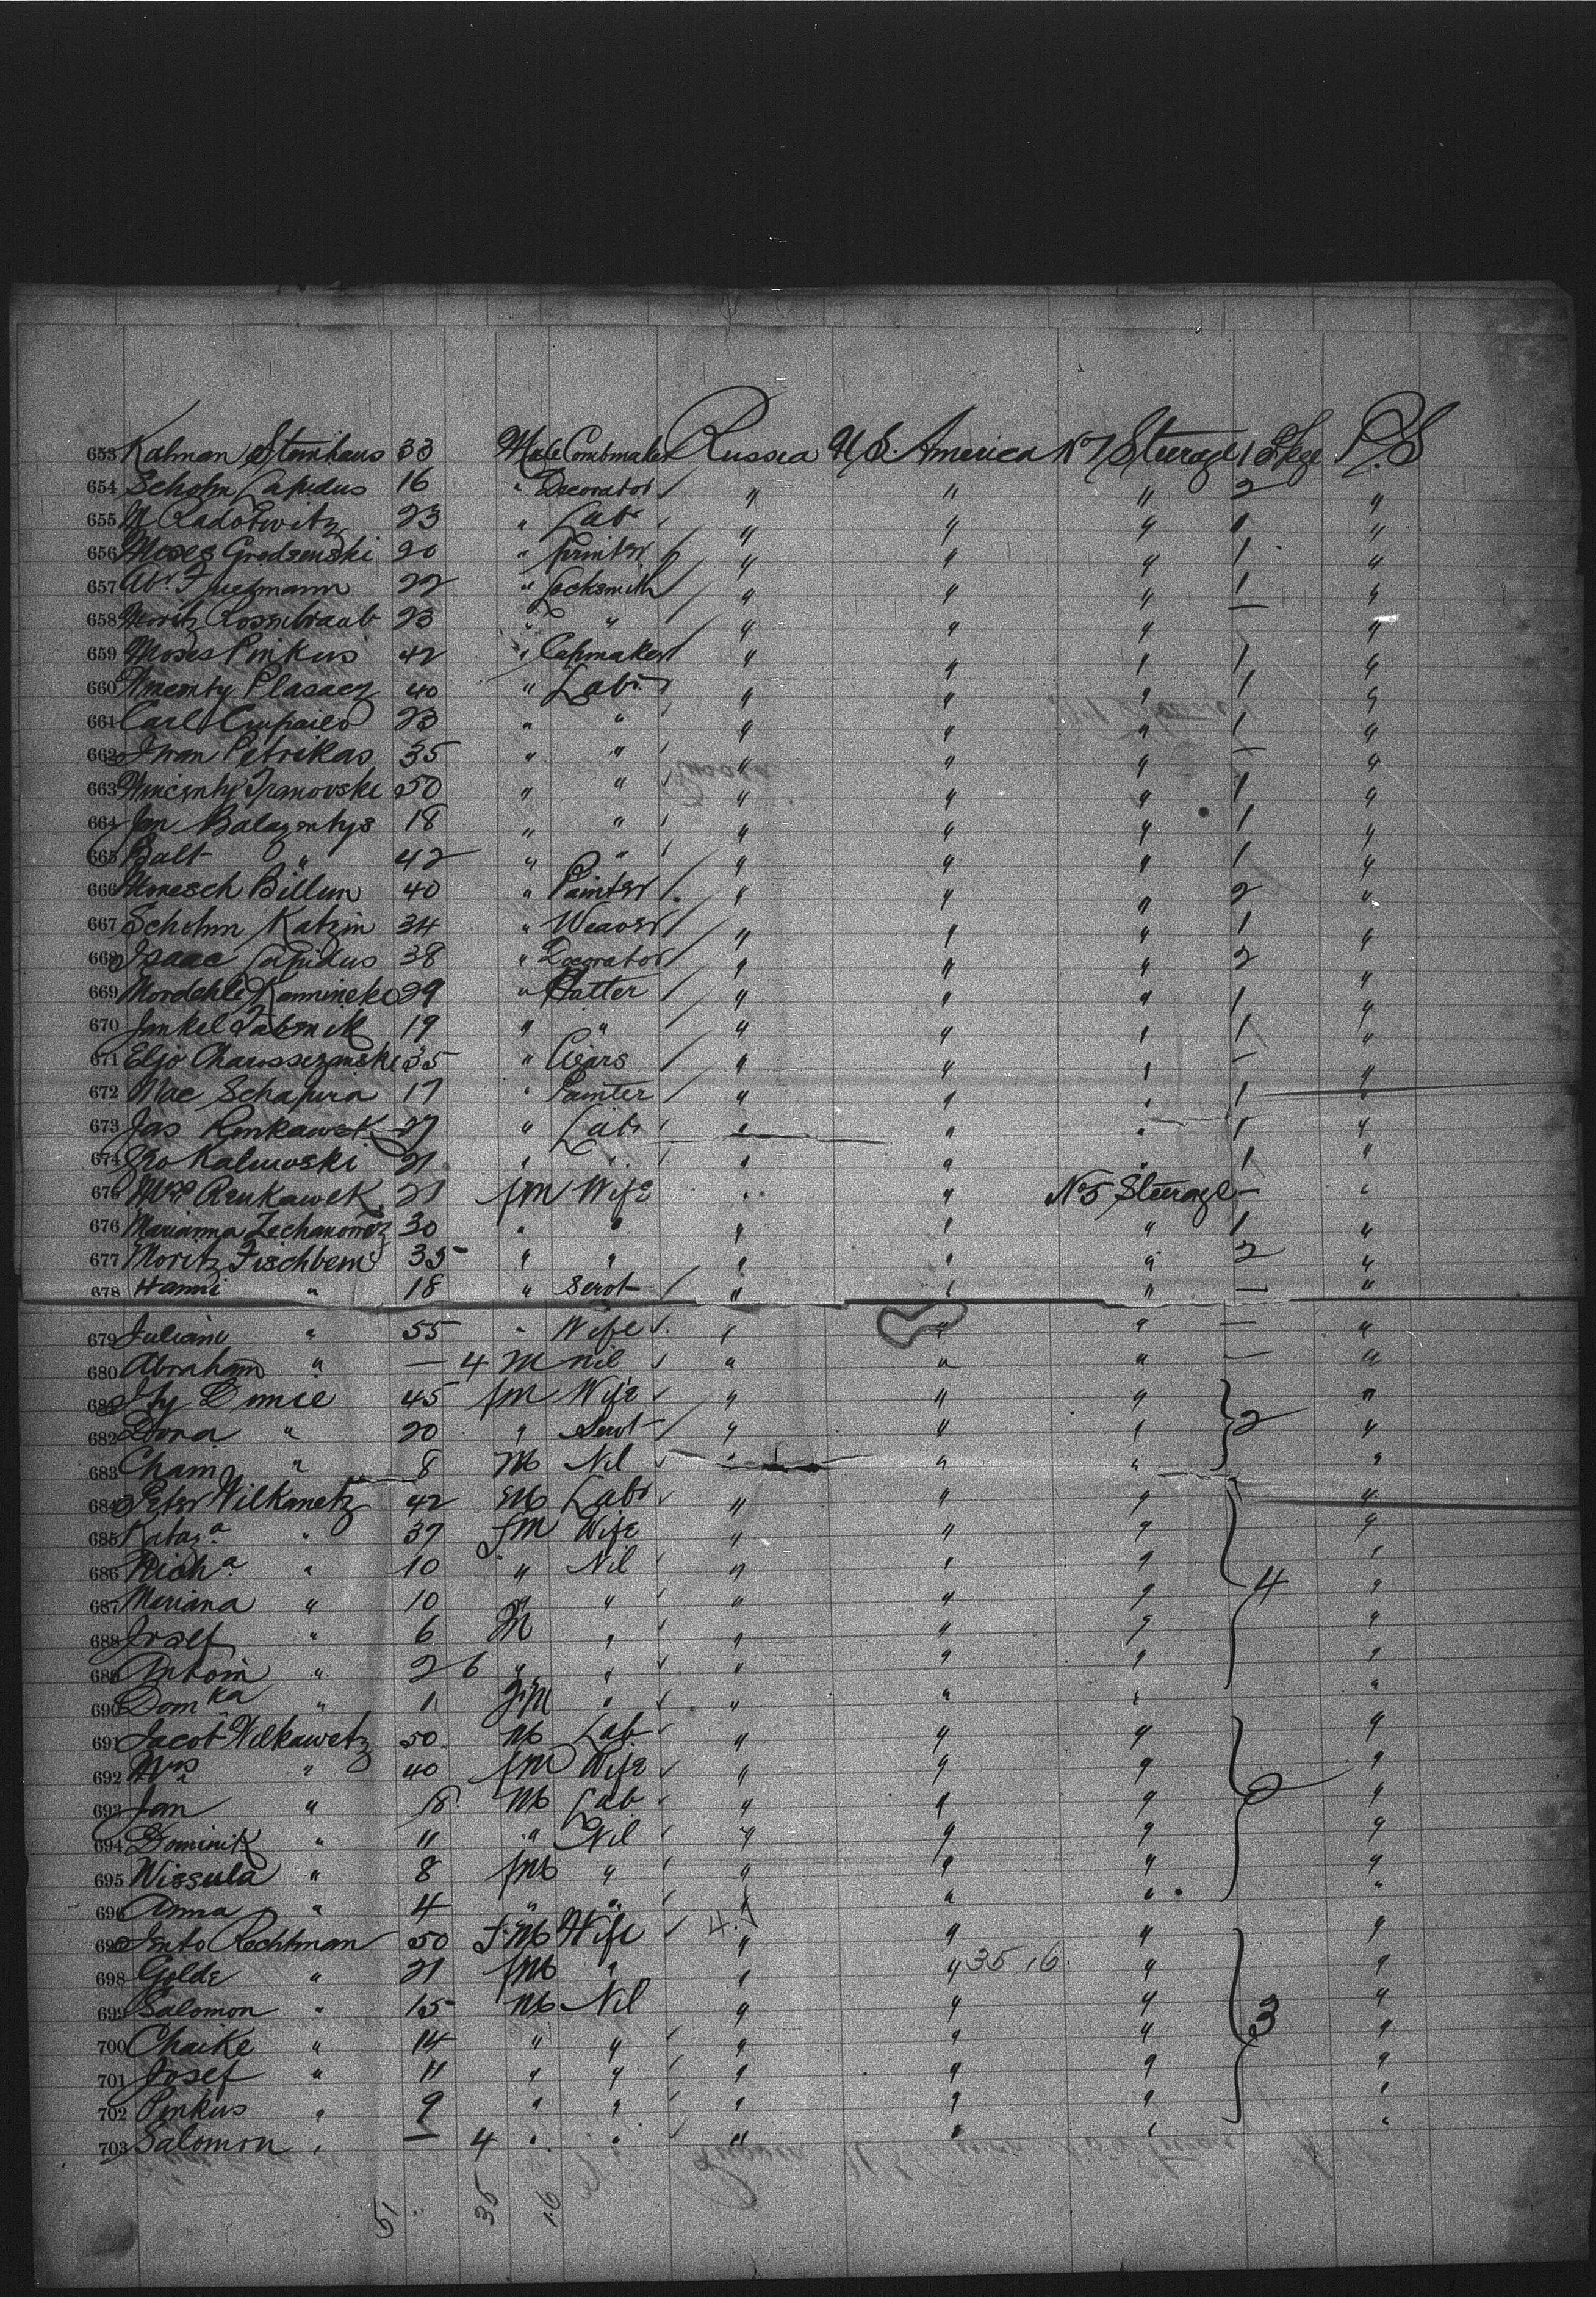 653 Kalman Steinhaus 33 Male Combmaker Russia U.S. America No 1 Steerage 1 Pkge P.S
654 Scholm Lapidus 16 " Decorator / " " " 2 "
655 N Radotwitz 23 " Labr " " " 1 "
656 Moses Grodzenski 20 " Printer " " " 1 "
657 Abr. 22 " Locksmith / " " " 1 "
658 Moritz Rosentraub 23 " " / " " " — "
659 Moses Pinkus 42 " Capmaker / " " " 1 "
660 Wincenty Plasacz 40 " Labr " " " 1 "
661 Carl 23 " " " " " 1 "
662 Iwan Petrikas 35 " " " " " — "
663 Wincenty 50 " " " " " 1 "
664 Jan Balazentys 18 " " " " " 1 "
665 Balt " 42 " " " " " 1 "
666 Billun 40 " Painter " " " 2 "
667 Scholm Katzin 34 " Weaver / " " " 1 "
668 Isaac Lapidus 38 " Decorator / " " " 2 "
669 29 " Hatter / " " " 1 "
670 Jankel 19 " " / " " " 1 "
671 Eljo 35 " Cigars / " " " — "
672 Mac Schapira 17 " Painter " " " 1 "
673 Jas 27 " Labr " " " 1 "
674 Kaluwski 21 " " " " " 1 "
675 Mrs 21 fm Wife " " No 5 Steerage — "
676 Marianna Zechanowicz 30 " " " " " 1 "
677 Moritz Fischbein 35 " " " " " 2 "
678 Hanni " 18 " Servt / " " " — "
679 Juliane " 55 " Wife " " " — "
680 Abraham " — 4 M nil " " " — "
681 45 fm Wife " " " "
682 Dora " 20 " Servt / " " " 2 "
683 Cham " 8 M Nil " " " "
684 Peter Wilkawetz 42 M Labr " " " "
685 Kataz.a " 37 fm Wife " " " "
686 " 10 " Nil " " " "
687 Mariana " 10 " " " " " 4 "
688 Josef " 6 M " " " " "
689 Antoin " 2 6 " " " " " "
690 Domka " 1 fm " " " " "
691 Jacob Wilkawetz 50 M Lab " " " "
692 Mrs " 40 fm Wife " " " "
693 Jan " 18 M Lab " " " "
694 Dominik " 11 " Nil " " " "
695 Wissula " 8 fm " " " " "
696 Anna " 4 " " " " "
697 Rechtman 50 fm Wife " " " "
698 Golde " 21 fm " " " 35 16 " "
699 Salomon " 15 M Nil " " " 3 "
700 Chaike " 14 " " " " " "
701 Josef " 11 " " " " " "
702 Pinkus " 9 " " " " " "
703 Salomon " — 4 " " " " " "
51 35 16